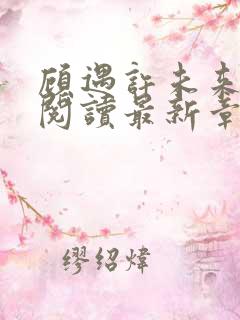 顾遇許未来
閱讀最新章
繆绍煒